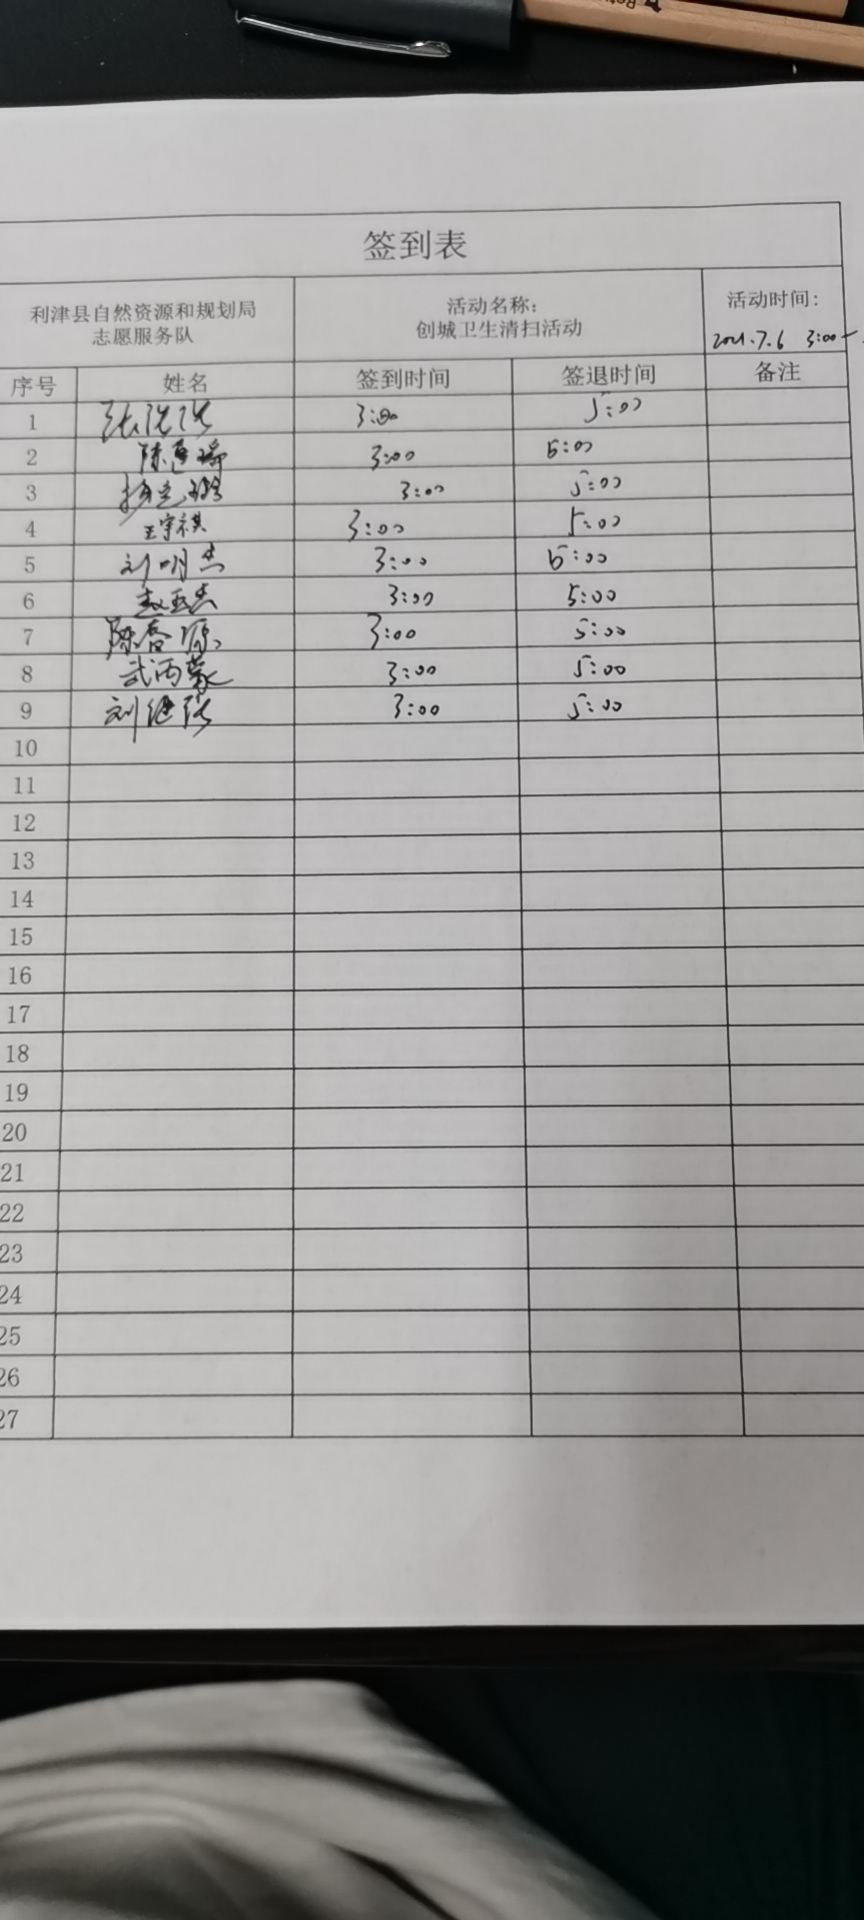 签到表
利津县自然资源和规划局
志愿服务队
活动名称：
创城卫生清扫活动
活动时间：
2021.7.6 3:00-
序号 姓名 签到时间 签退时间 备注
1 3:00 5:00
2 3:00 5:00
3 3:00 5:00
4 王宇祺 3:00 5:00
5 刘明杰 3:00 5:00
6 3:00 5:00
7 陈香源 3:00 5:00
8 武丙蒙 3:00 5:00
9 刘继强 3:00 5:00
10
11
12
13
14
15
16
17
18
19
20
21
22
23
24
25
26
27